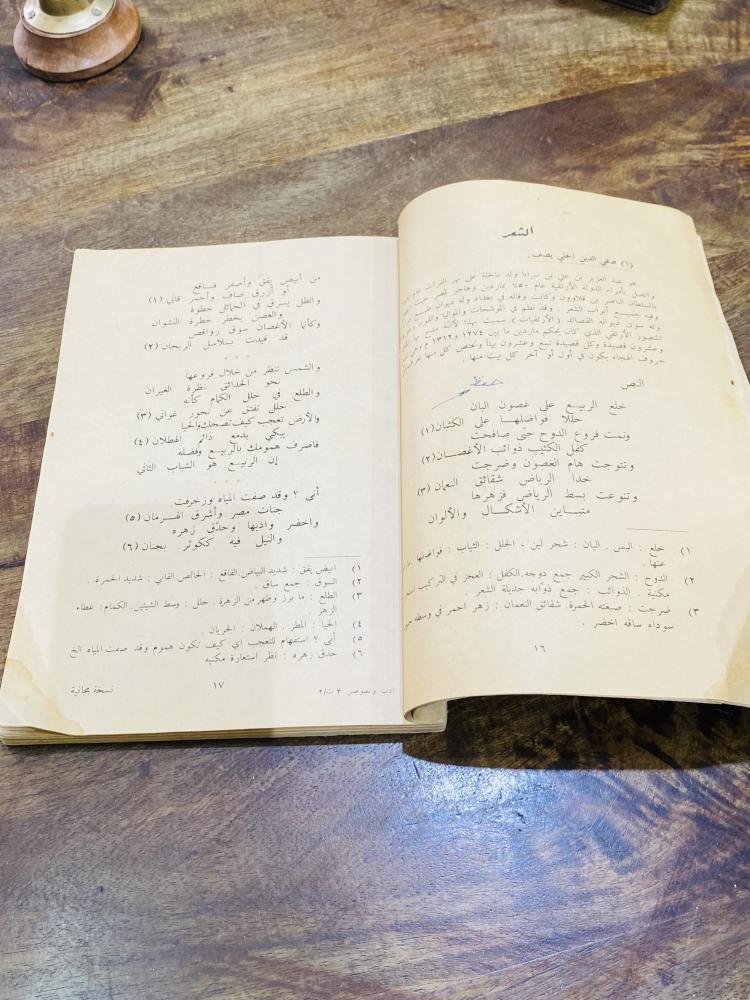 الشعر
(١) صفي الدين الحلي يصف .
هو عبد العزيز بن علي بن سرايا ولد بالحلة على نهر الفرات عام
واتصل بأمراء الدولة الأرتقية عام ٧٥٠ بماردين وهاجر لمصر
بالسلطان الناصر بن قلاوون وكانت وفاته في بغداد وله ديوان
وفيه جميع أبواب الشعر . وقد نظم في الموشحات والمواليا
وله سوى ديوانه القصائد ( الأرتقيات ) سميت بهذا لأنه مدح بها
المنصور الأرتقي الذي كان يحكم ماردين ما بين ١٢٧٤ و ١٣١٢ م وهي
وعشرون قصيدة وكل قصيدة تسع وعشرون بيتاً وتختص كل منها بحرف
حروف الهجاء يكون في أول أو آخر كل بيت منها .
النص
حفظ
خلع الربيع على غصون البان
حللا فواضلها على الكثبان (١)
ونمت فروع الدوح حتى صافحت
كفل الكثيب ذوائب الأغصان (٢)
وتتوجت هام الغصون وضرجت
خدا الرياض شقائق النعمان (٣)
وتنوعت بسط الرياض فزهرها
متباين الأشكال والألوان
١) خلع : البس . البان : شجر لين ، الحلل : الثياب : فواضلها
عنها .
٢) الدوح : الشجر الكبير جمع دوحه.الكفل : العجز في التركيب
مكنية . الذوائب : جمع ذوابه جديلة الشعر .
٣) ضرجت : صبغته الحمرة. شقائق النعمان : زهر احمر في وسطه
سوداء ساقه اخضر .
١٦
من أبيض يقق وأصفر فاقع
أو أزرق صاف وأحمر قاني (١)
والظل يسرق في الخمائل خطوة
والغصن يخطر خطرة النشوان
وكأنما الأغصان سوق رواقص
قد قيدت بسلاسل الريحان (٢)
* * *
والشمس تنظر من خلال فروعها
نحو الحدائق نظرة الغيران
والطلع في خلل الكمام كأنه
حلل تفتق عن نحور غواني (٣)
والأرض تعجب كيف تضحك والحيا
يبكي بدمع دائم الهطلان (٤)
فاصرف همومك بالربيع وفضله
إن الربيع هو الشباب الثاني
* * *
أنى ؟ وقد صفت المياه وزخرفت
جنات مصر وأشرق الهرمان (٥)
واخضر واديها وحدّق زهره
والنيل فيه ككوثر بجنان (٦)
١) ابيض يقق : شديد البياض.الفاقع : الخالص.القاني : شديد الحمرة .
٢) السوق : جمع ساق .
٣) الطلع : ما برز وظهر من الزهرة . خلل : وسط الشيئين. الكمام: غطاء
الزهر .
٤) الحيا : المطر . الهملان : الجريان .
٥) أنى ؟ استفهام للتعجب اي كيف تكون هموم وقد صفت المياه الخ
٦) حدق زهره : نظر استعارة مكنيه
١٧
ادب ونصوص ٣ ث/٢
نسخة مجانية